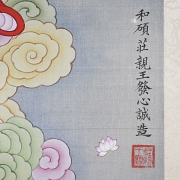 和碩莊親王發心誠造